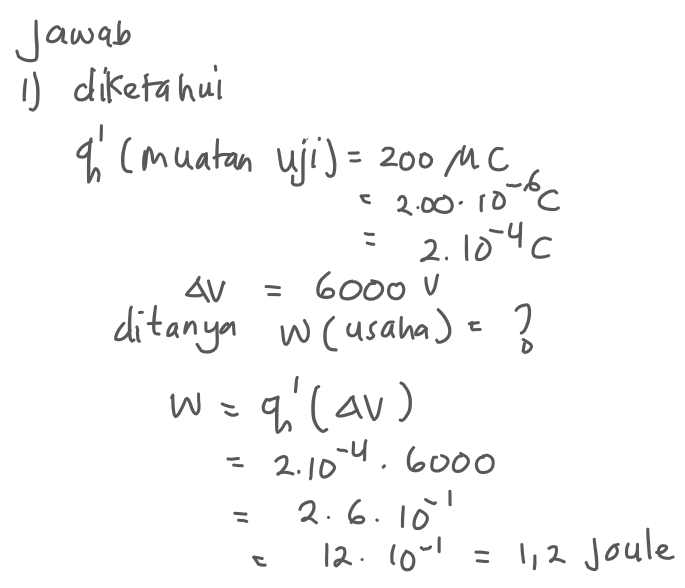 Jawab
1) diketahui
q' (muatan uji) = 200 μC
= 2.00. 10⁻⁶C
= 2. 10⁻⁴ C
ΔV = 6000 V
ditanya W (usaha) = ?
W = q' (ΔV)
= 2.10⁻⁴. 6000
= 2. 6. 10⁻¹
= 12. 10⁻¹ = 1,2 Joule